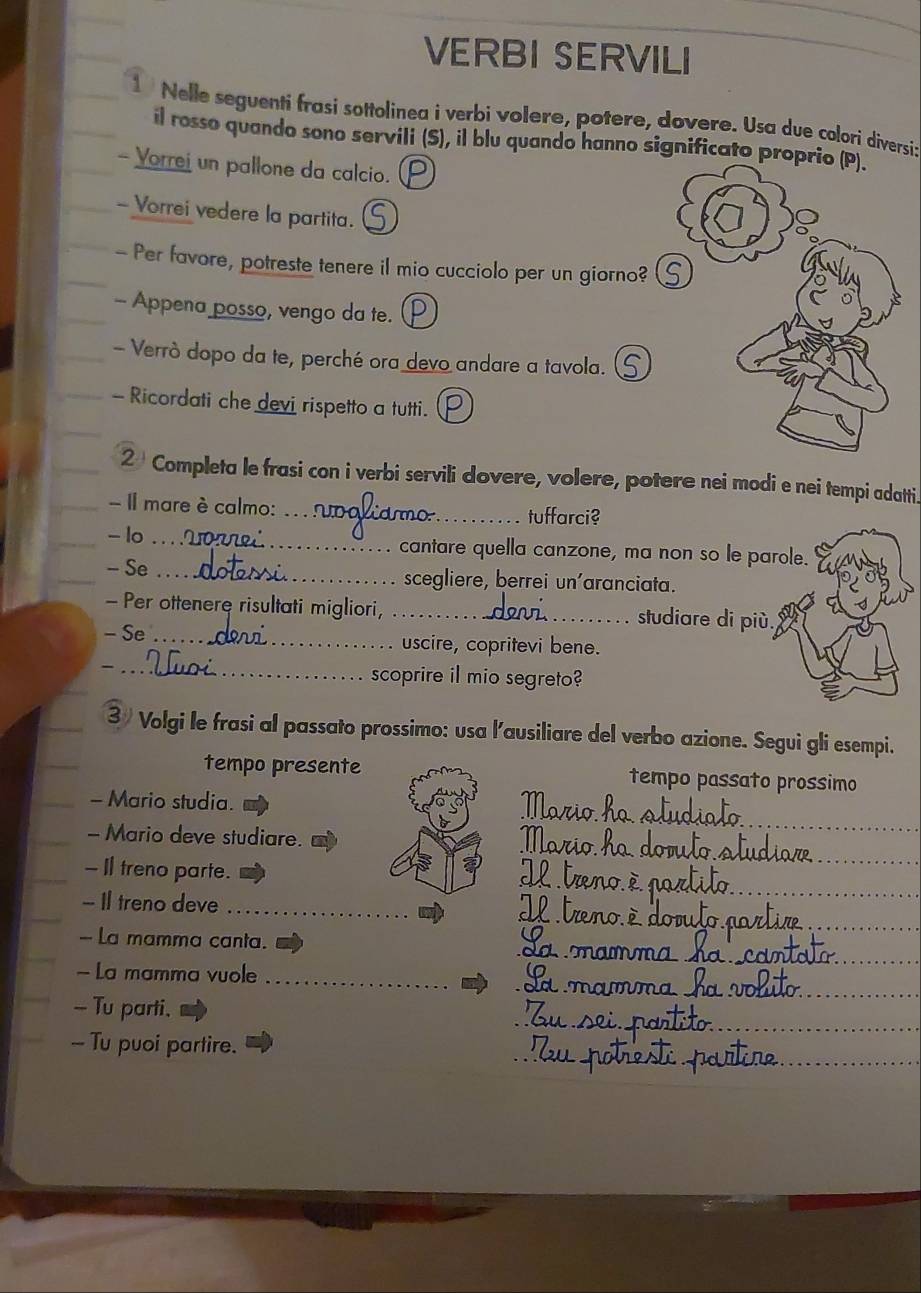 VERBI SERVILI
1 Nelle seguenti frasi sottolinea i verbi volere, potere, dovere. Usa due colori diversi:
il rosso quando sono servili (S), il blu quando hanno significato proprio (P).
- Vorrei un pallone da calcio. P
- Vorrei vedere la partita. S
- Per favore, potreste tenere il mio cucciolo per un giorno? S
- Appena posso, vengo da te. P
- Verrò dopo da te, perché ora devo andare a tavola. S
- Ricordati che devi rispetto a tutti. P
2 Completa le frasi con i verbi servili dovere, volere, potere nei modi e nei tempi adatti.
- Il mare è calmo: ... vogliamo ......... tuffarci?
- Io .... vorrei ............. cantare quella canzone, ma non so le parole.
- Se ..... dotessi ............ scegliere, berrei un'aranciata.
- Per ottenere risultati migliori, .......... devi ......... studiare di più.
- Se ...... devi ............. uscire, copritevi bene.
- .... Vuoi ................ scoprire il mio segreto?
3 Volgi le frasi al passato prossimo: usa l'ausiliare del verbo azione. Segui gli esempi.
tempo presente tempo passato prossimo
- Mario studia. Mario ha studiato
- Mario deve studiare. Mario ha dovuto studiare
- Il treno parte. Il treno è partito
- Il treno deve .................... Il treno è dovuto partire
- La mamma canta. La mamma ha cantato
- La mamma vuole .................... La mamma ha voluto
- Tu parti. Tu sei partito
- Tu puoi partire. Tu potresti partire